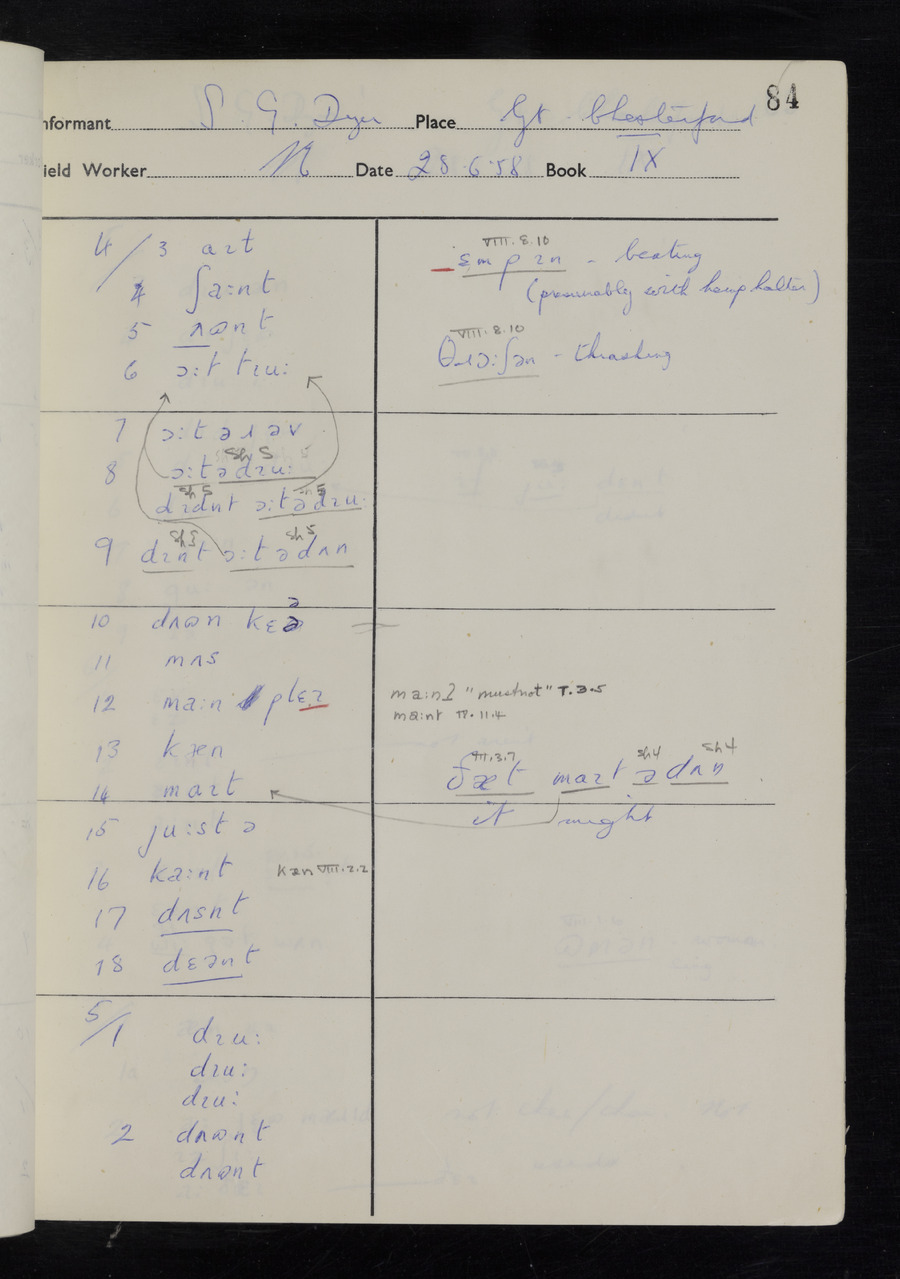 84
nformant S. G. Dyer Place Gt. Chesterford
ield Worker N Date 28.6.58 Book IX
4/3 aɪt
4 ʃaːnt
5 ʌɷnt
6 ɔːt tɪuː
7 ɔːt ə ɹ əv
8 ɔːt ə dɪuː
sh 5
dɪdnt ɔːt ə dɪuː
sh 5 sh 5
9 dɪnt ɔːt ə dʌn
sh 5 sh 5
10 dʌɷn kɛə
11 mʌs
12 maːn plɛɪ
13 kæn
14 maɪt
15 juːst ə
16 kaːnt kən VIII.2.2
17 dʌsnt
18 dɛənt
5/1 dɪuː
dɪuː
dɪuː
2 dʌɷnt
dʌɷnt
VIII.8.10
ɛmpɪn - beating
(presumably with hemp halter)
VIII.8.10
θɹɔːʃən - thrashing
"mustnot" T.3.5
maːnt IV.11.4
VII.3.7 sh 4 sh 4
ðæt maɪt ə dʌn
it might